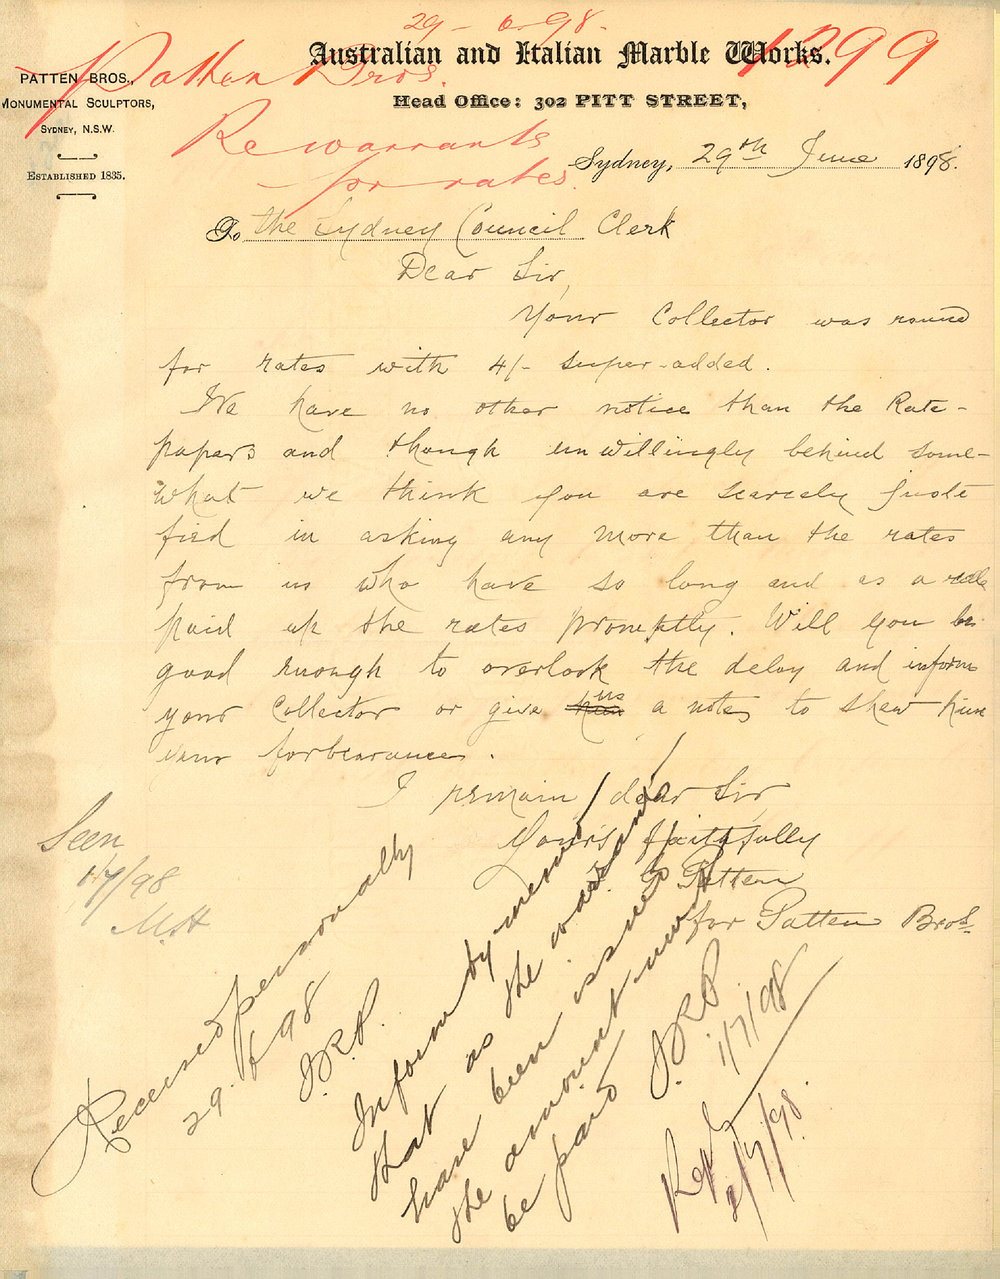 29-6-98.
Australian and Italian Marble Works.
1299
PATTEN BROS.,
MONUMENTAL SCULPTORS,
SYDNEY, N.S.W.
ESTABLISHED 1835.
Patten Bros.
Head Office: 302 PITT STREET,
Re warrants
for rates.
Sydney, 29th June 1898.
To the Sydney Council Clerk
Dear Sir,
Your Collector was round
for rates with 4/- super-added.
We have no other notice than the Rate-
papers and though unwillingly behind some-
what we think you are scarcely justi
fied in asking any more than the rates
from us who have so long and as a rule
paid up the rates promptly. Will you be
good enough to overlook the delay and inform
your Collector or give him us a note to shew him
your forbearance.
I remain dear Sir
Yours faithfully
Patten
for Patten Bros.
Seen
1/7/98
M.H
Received personally
29.6.98
J.R.P.
Inform by memo
that as the warrant
have been issued
the amount must
be paid J.R.P.
1/7/98
2/7/98.